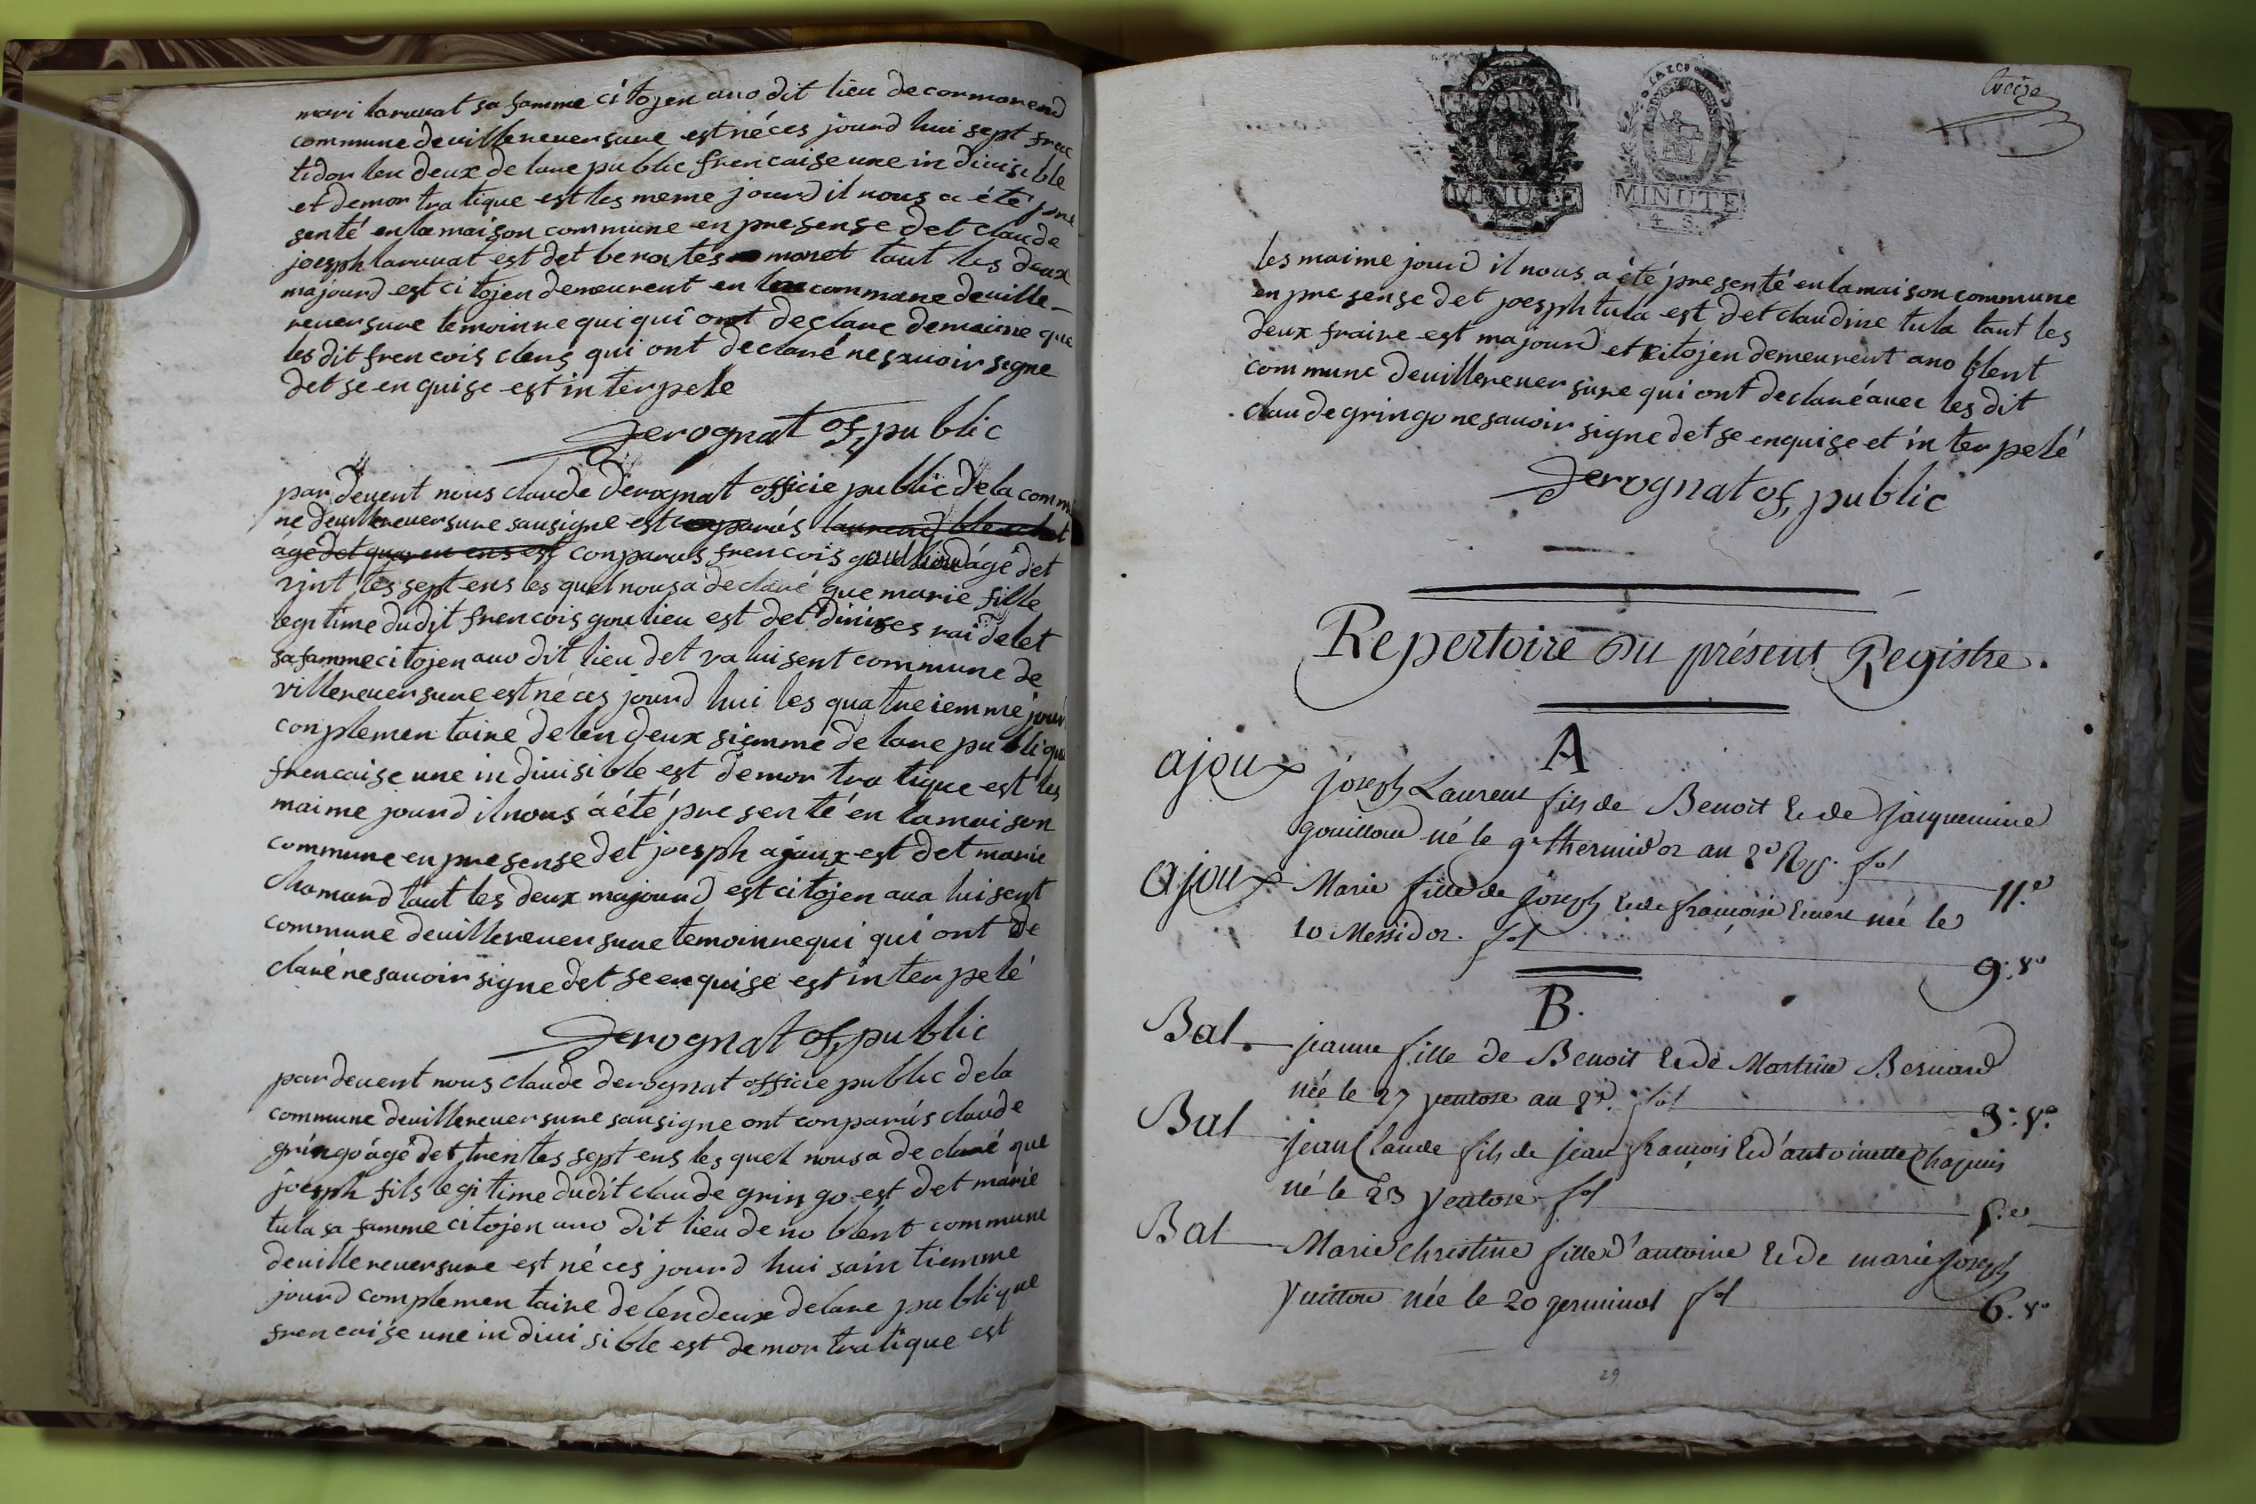 mari laruat sa famme citojen auo dit lieu de cormorend
commune deuillereuersure est né ces jourd hui sept fruc
tidor len deux de lare public francaise une in diuisible
et demor tra tique est les meme jourd il nous a été pre
senté en la maison commune en presense det claude
joesph laruat est det benoites moret taut les deux
majourd est citojen demeurent en la commune deuille
reuersure temoinne que qui ont declare demaime que
les dit francois clerg qui ont declaré ne sauoir signe
det se en quise est in ter pele
Derognat of, public
par deuent nous claude derognat officie public de la commu
ne deuillereuersure sausigne est conparus laurend
agé det quaren ens est conparus francois goullion ágé det
vint tes sept ens les quel nous a declaré que marie fille
legitime dudit francois goulieu est det dinises rai de let
sa famme citojen auo dit lieu det va luisent commune de
villereuersure est né ces jourd hui les quatrieimme jour
conplemen taire de len deux siemme de lare publique
francaise une in diuisible est demor tra tique est les
maime jourd il nous á été pre senté en la maison
commune en presense det joesph ajoux est det marie
chamard taut les deux majourd est citojen aua luisent
commune deuillereuersure temoinne qui qui ont de
claré ne sauoir signe det se en quise est in ter pelé
Derognat of, public
par deuent nous claude derognat officie public de la
commune deuillereuersure sausigne ont conparús claude
gringo ágé det trentes sept ens les quel nous a declaré que
joesph fils legitime dudit claude gringo est det marie
tula sa famme citojen auo dit lieu de no blent commune
deuillereuersure est né ces jourd hui sain tiemme
jourd complemen taire de len deux de lare publique
francaise une in diuisible est demor tra tique est
treize
MINUTE
MINUTE
4. S.
les maime jourd il nous a été presenté en la maison commune
en pre sense det joesph tula est det claudine tula taut les
deux fraire est majourd et citojen demeurent ano blent
commune deuillereuersure qui ont declaré auec les dit
claude gringo ne sauoir signe det se enquise et in ter pelé
Derognat of, public
Repertoire du présent Registre.
A
ajoux joseph Laurent fils de Benoit & de jacquemine
gouilloud né le 9e thermidor an 2d Rep. fol 11.e
ajoux Marie fille de joseph & de francoise née le
10 Messidor. fol 9. vo
B.
Bal jeanne fille de Benoit & de Marthie Bernard
née le 27 ventose an 2d. fol 3. vo
Bal jean Claude fils de jean francois & d'antoinette Chapuis
né le 23 ventose fol 5.e
Bal Marie christine fille d'antoine & de marie joseph
vuitton née le 20 germinal fol 6. vo
29